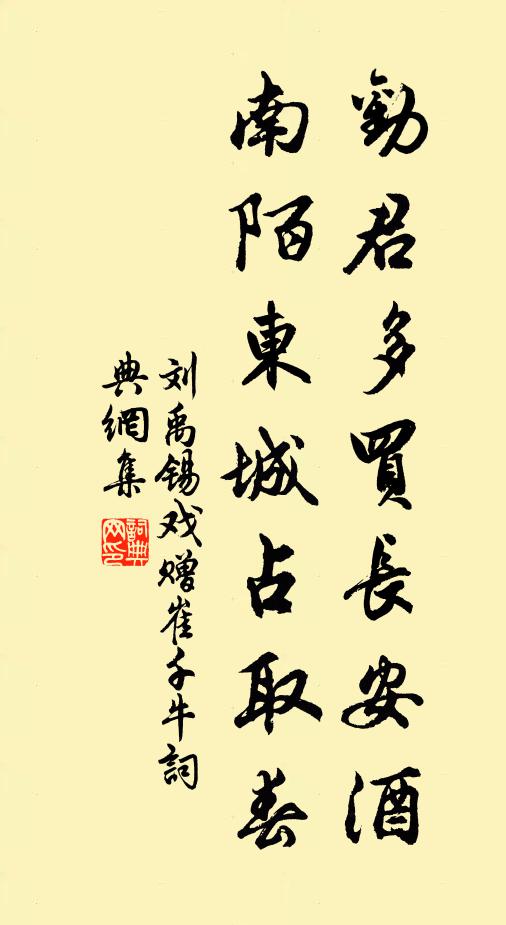 勸君多買長安酒
南陌東城占取春
刘禹锡戏赠崔千牛詞
典網集
詞典
网印